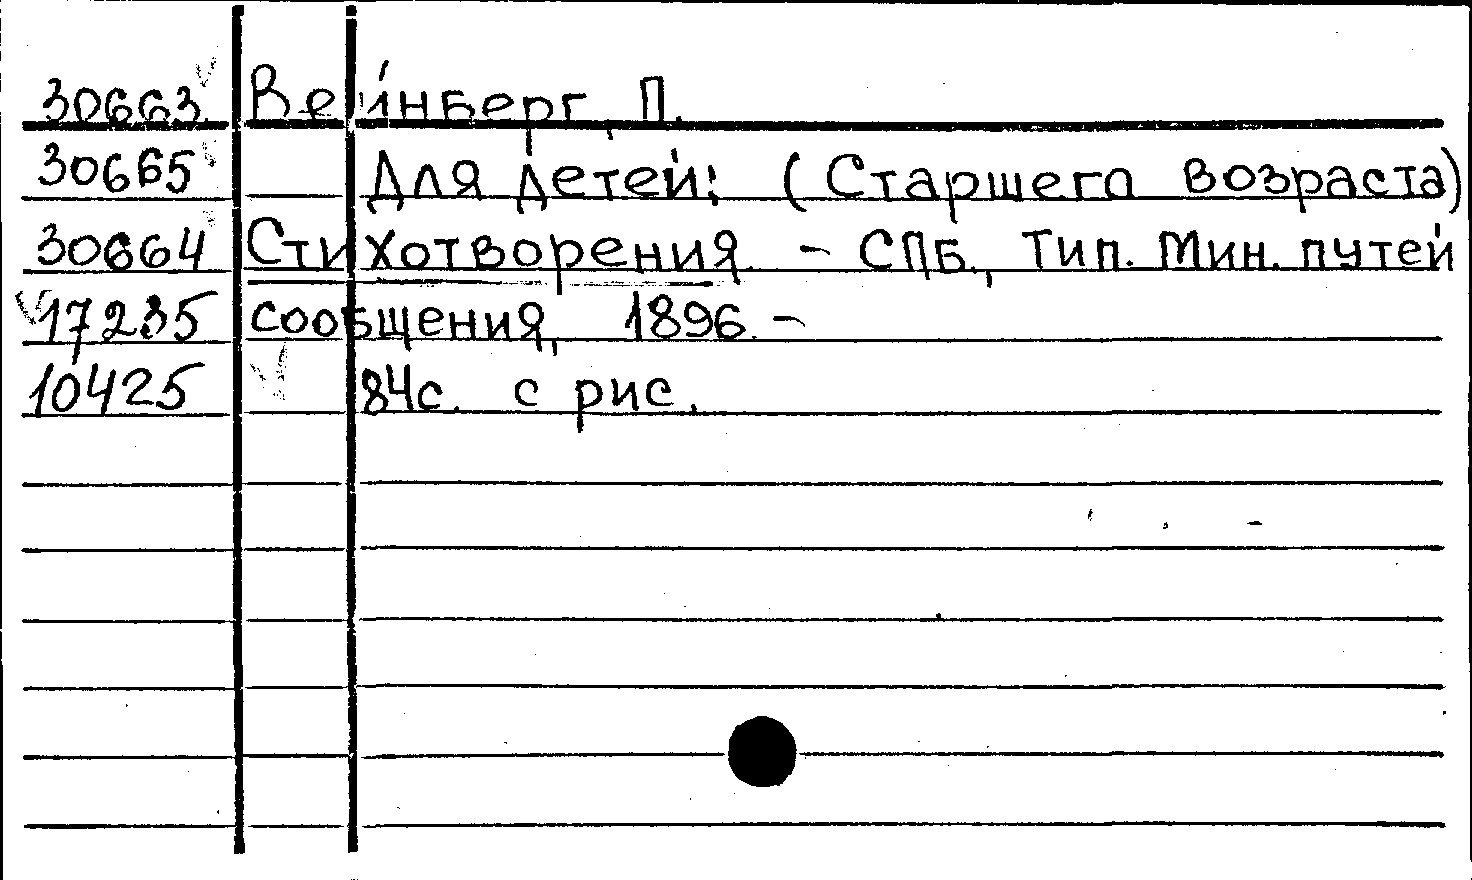 30663 Вейнберг, П.
30665 Для детей: (Старшего возраста)
30664 Стихотворения. - СПБ., Тип. Мин. путей
17235 сообщения, 1896. -
10425 84с. с рис.